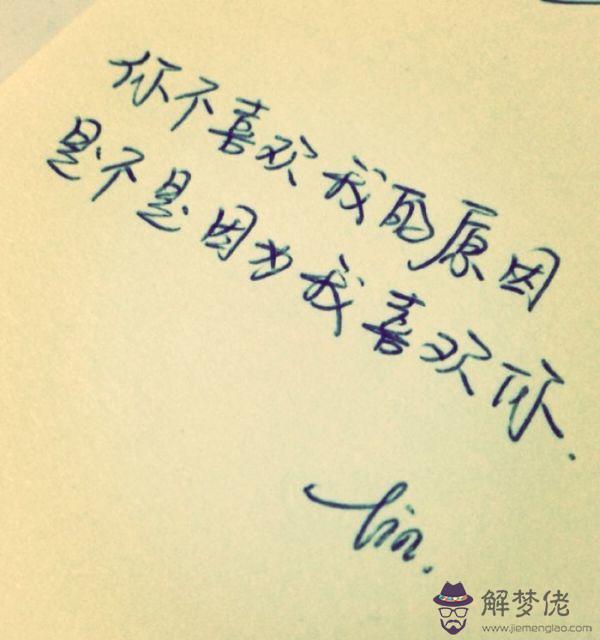 你不喜欢我的原因
是不是因为我喜欢你.
解梦佬
www.jiemenglao.com